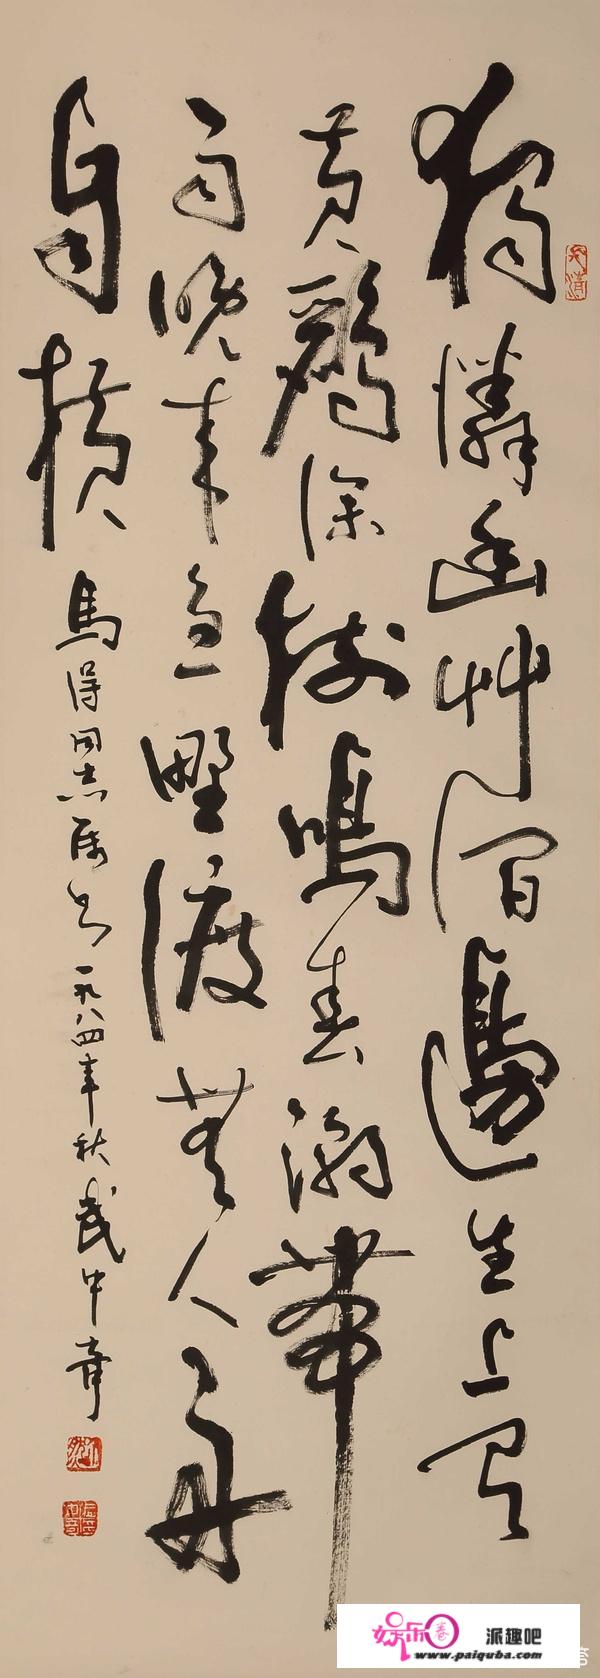 獨憐幽艸澗邊生上有
黃鸝深樹鳴春潮帶
雨晚來急野渡無人舟
自橫
馬得同志屬書一九八四年秋武中奇
娱乐卷 派趣吧
www.paiquba.com